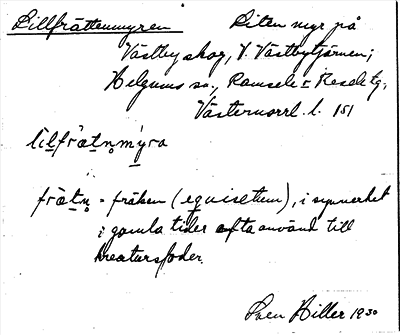 Lillfrättenmyren Liten myr på
Västby skog, V. Västbytjärnen;
Helgums sn, Ramsele o Resele tg,
Västernorrl. l. 151
lìlfrætn̥mýra
frætn̥ = fräken (equisetum), i synnerhet
i gamla tider ofta använd till
kreatursfoder.
Sven Hiller 1930